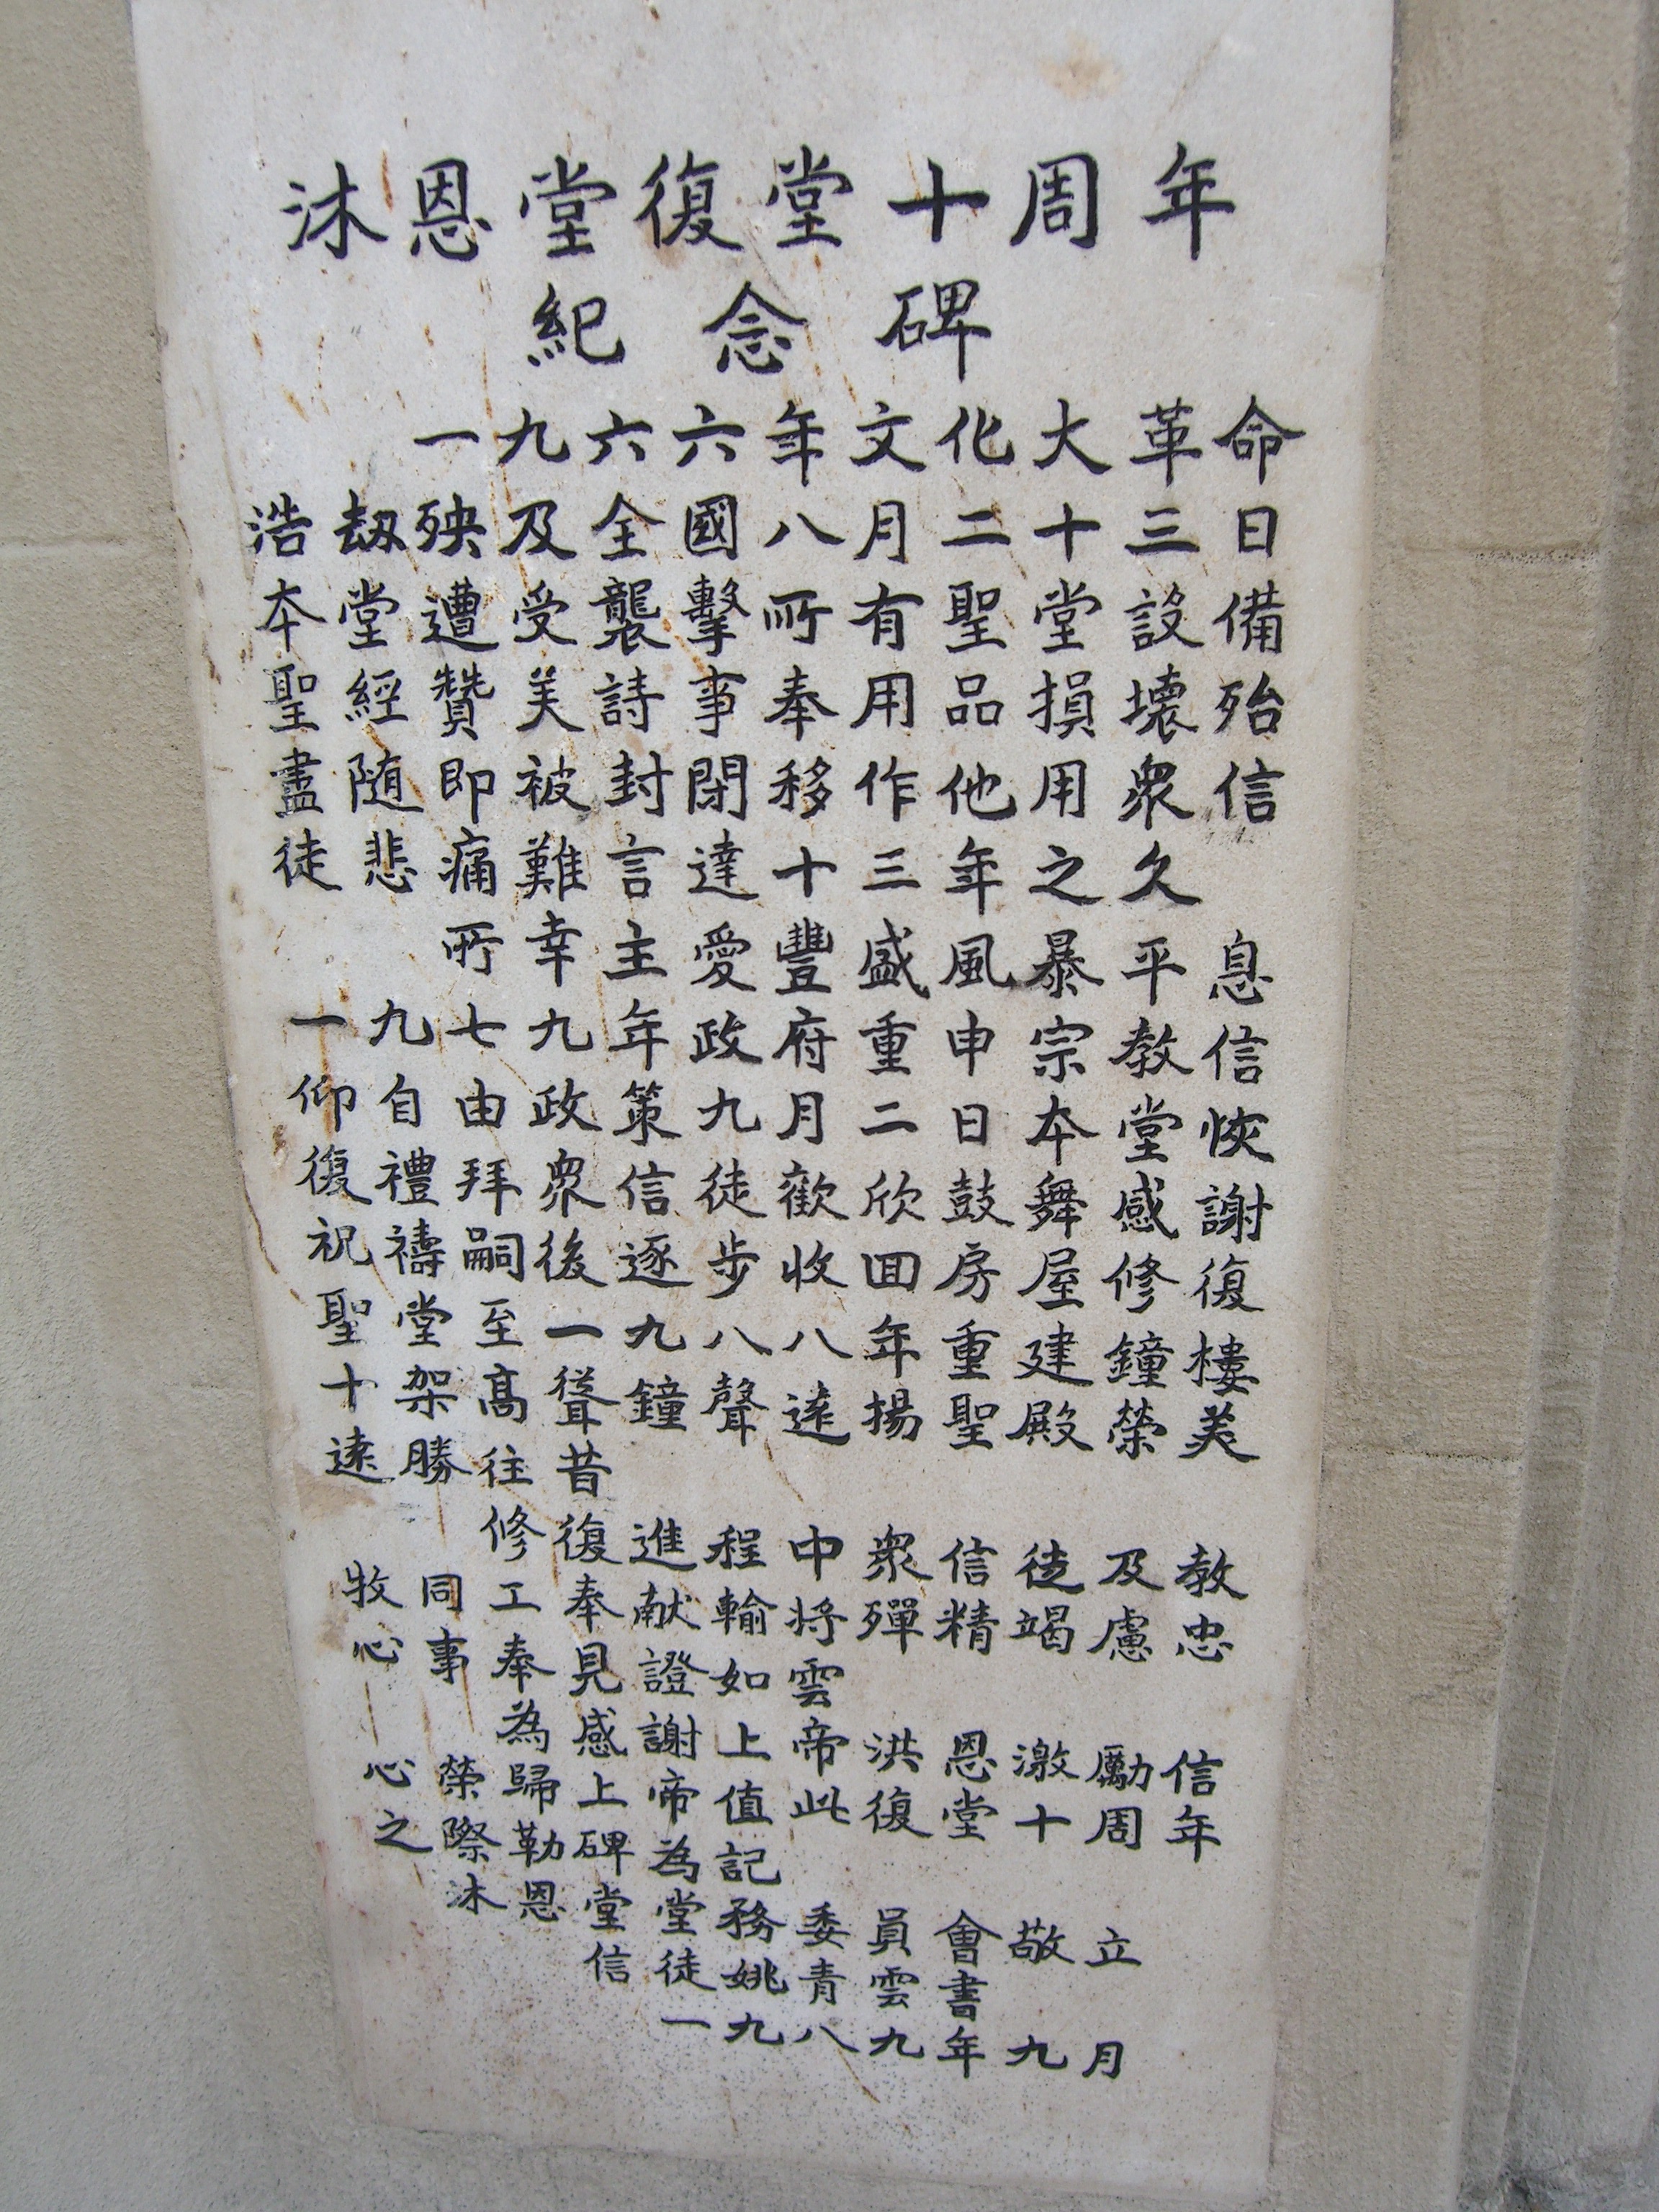 沐恩堂復堂十周年
紀念碑
一九六六年文化大革命
浩劫殃及全國八月二十三日
本堂遭受襲擊所有聖堂設備
聖經贊美詩事奉用品損壞殆
盡随即被封閉移作他用眾信
徒悲痛難言達十三年之久
所幸主愛豐盛風暴平息
一九七九年政府重申宗教信
仰自由政策九月二日本堂恢
復禮拜眾信徒歡欣鼓舞感謝
祝禱嗣後逐步收回房屋修復
聖堂至一九八八年重建鐘樓
十架高聳鐘聲遠揚聖殿榮美
遠勝往昔
修復進程中眾信徒及教
牧同工奉献輸將殫精竭慮忠
心事奉見證如雲
為感謝上帝洪恩激勵信
心榮歸上帝值此復堂十周年
之際勒碑為記
沐恩堂堂務委員會敬立
信徒姚青雲書
一九八九年九月